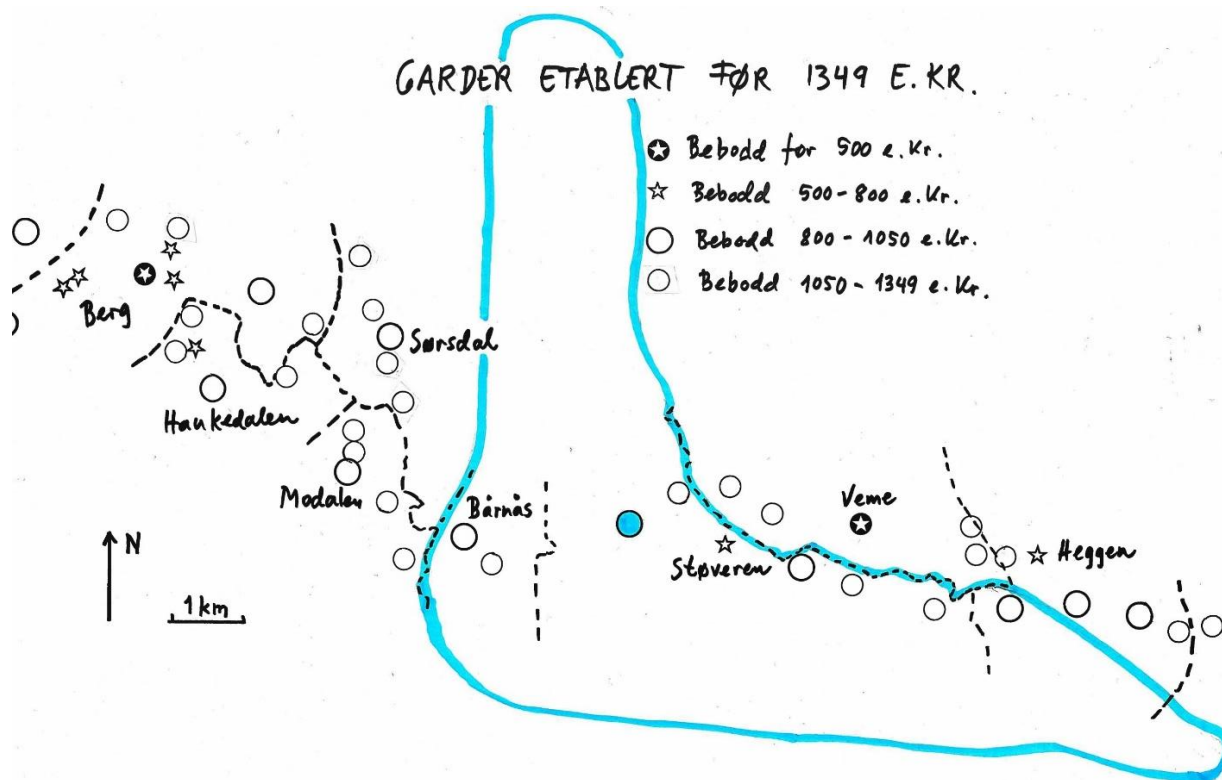 GARDER ETABLERT FØR 1349 E. KR.
Bebodd før 500 e.Kr.
Bebodd 500-800 e.Kr.
Bebodd 800-1050 e.Kr.
Bebodd 1050-1349 e.Kr.
Berg
Sørsdal
Haukedalen
Modalen
Bårnås
Veme
Støveren
Heggen
N
1 km